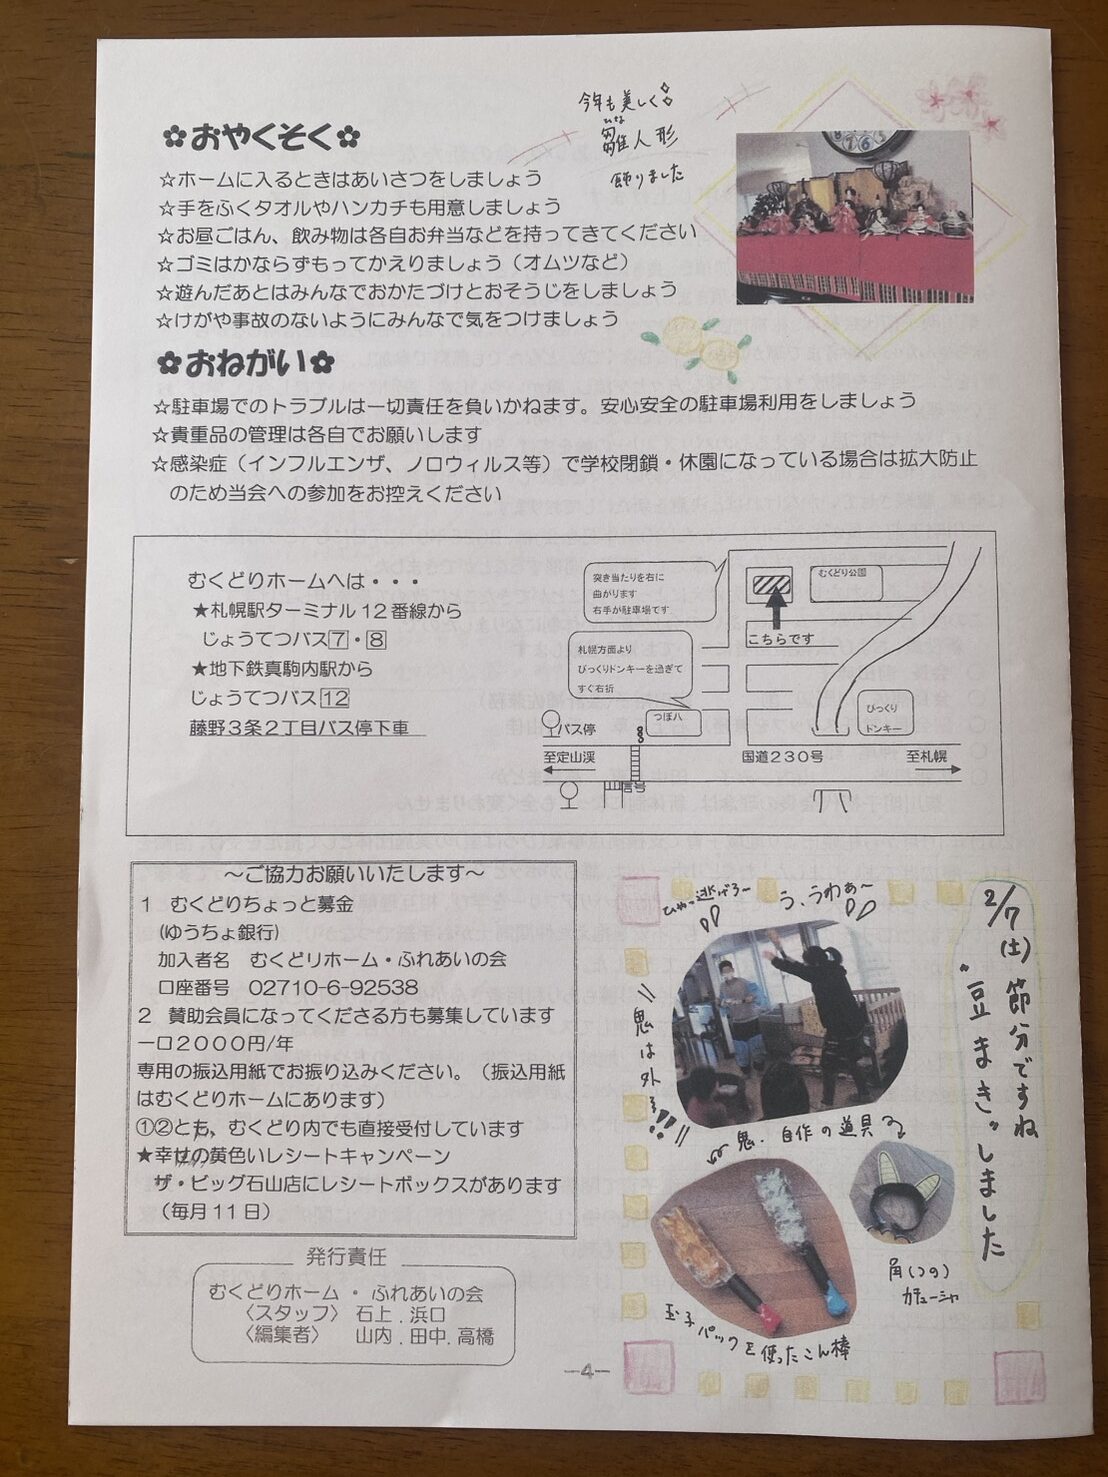 今年も美しく
雛人形
ひな
飾りました
✿おやくそく✿
☆ホームに入るときはあいさつをしましょう
☆手をふくタオルやハンカチも用意しましょう
☆お昼ごはん、飲み物は各自お弁当などを持ってきてください
☆ゴミはかならずもってかえりましょう(オムツなど)
☆遊んだあとはみんなでおかたづけとおそうじをしましょう
☆けがや事故のないようにみんなで気をつけましょう
✿おねがい✿
☆駐車場でのトラブルは一切責任を負いかねます。安心安全の駐車場利用をしましょう
☆貴重品の管理は各自でお願いします
☆感染症(インフルエンザ、ノロウィルス等)で学校閉鎖・休園になっている場合は拡大防止
のため当会への参加をお控えください
むくどりホームへは・・・
★札幌駅ターミナル12番線から
じょうてつバス7・8
★地下鉄真駒内駅から
じょうてつバス12
藤野3条2丁目バス停下車
突き当たりを右に
曲がります
右手が駐車場です
むくどり公園
こちらです
札幌方面より
びっくりドンキーを過ぎて
すぐ右折
つぼ八
びっくり
ドンキー
バス停
至定山渓
国道230号
至札幌
信号
~ご協力お願いいたします~
1 むくどりちょっと募金
(ゆうちょ銀行)
加入者名 むくどりホーム・ふれあいの会
口座番号 02710-6-92538
2 賛助会員になってくださる方も募集しています
一口2000円/年
専用の振込用紙でお振り込みください。(振込用紙
はむくどりホームにあります)
①②とも、むくどり内でも直接受付しています
★幸せの黄色いレシートキャンペーン
ザ・ビッグ石山店にレシートボックスがあります
(毎月11日)
発行責任
むくどりホーム・ふれあいの会
〈スタッフ〉 石上.浜口
〈編集者〉 山内.田中.高橋
-4-
2/7(土)節分ですね
"豆まき"しました
ひゃ〜逃げろー
う、うわぁ〜
鬼は外
鬼.自作の道具
角(つの)
カチューシャ
玉子パックを使ったこん棒